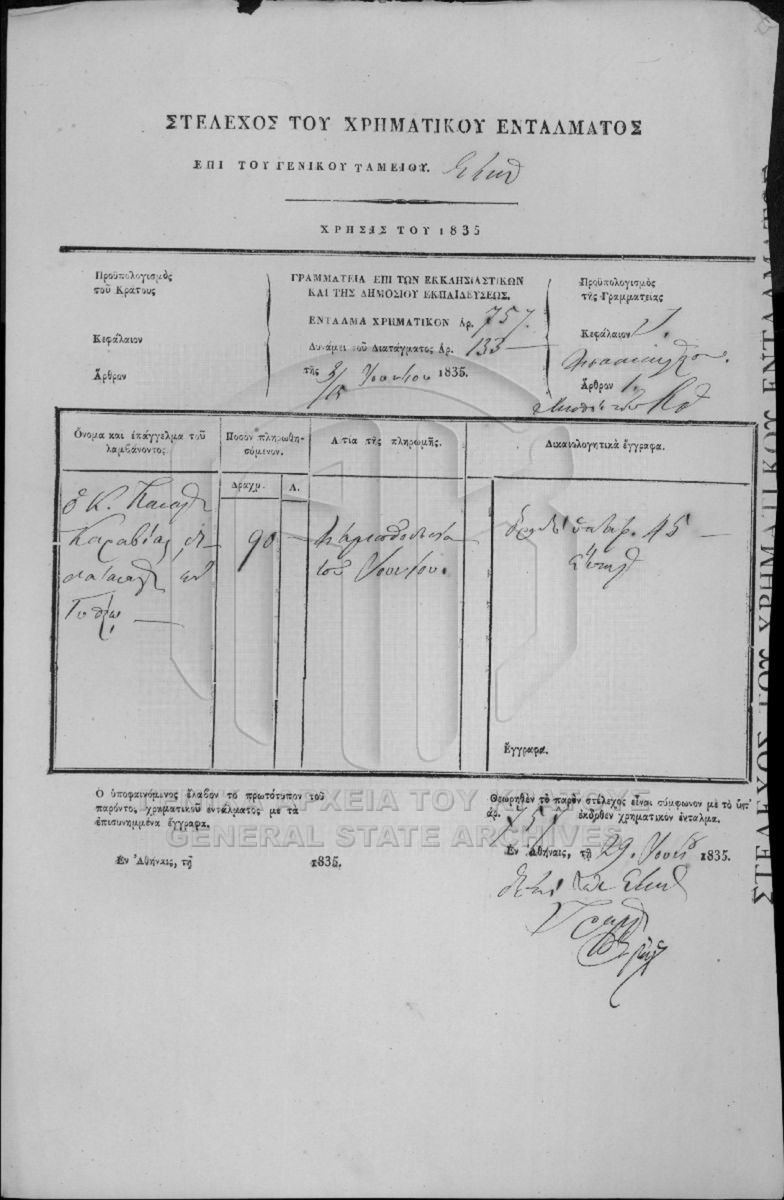 ΣΤΕΛΕΧΟΣ ΤΟΥ ΧΡΗΜΑΤΙΚΟΥ ΕΝΤΑΛΜΑΤΟΣ
ΕΠΙ ΤΟΥ ΓΕΝΙΚΟΥ ΤΑΜΕΙΟΥ.
ΧΡΗΣΙΣ ΤΟΥ 1835
Προϋπολογισμὸς
τοῦ Κράτους
Κεφάλαιον
Ἄρθρον
ΓΡΑΜΜΑΤΕΙΑ ΕΠΙ ΤΩΝ ΕΚΚΛΗΣΙΑΣΤΙΚΩΝ
ΚΑΙ ΤΗΣ ΔΗΜΟΣΙΟΥ ΕΚΠΑΙΔΕΥΣΕΩΣ.
ΕΝΤΑΛΜΑ ΧΡΗΜΑΤΙΚΟΝ Αρ. 757.
Δυνάμει τοῦ Διατάγματος Αρ. 133
τῆς 3/15 Ἰουνίου 1835.
Προϋπολογισμὸς
τῆς Γραμματείας
Κεφάλαιον
Ἄρθρον 1.
Ὄνομα καὶ ἐπάγγελμα τοῦ
λαμβάνοντος.
Ποσὸν πληρωθη-
σόμενον.
Δραχμ. Λ.
Αἰτία τῆς πληρωμῆς.
Δικαιολογητικὰ ἔγγραφα.
ὁ Κ.
Καραβίας
90
τοῦ Ἰουνίου.
45
Γυθείῳ
Ἔγγραφα.
Ο ὑποφαινόμενος ἔλαβον τὸ πρωτότυπον τοῦ
παρόντος χρηματικοῦ ἐντάλματος μὲ τὰ
ἐπισυνημμένα ἔγγραφα.
Ἐν Ἀθήναις, τῇ 1835.
Θεωρηθὲν τὸ παρὸν στέλεχος εἶναι σύμφωνον μὲ τὸ ὑπ'
ἀρ. 757 ἐκδοθὲν χρηματικὸν ἔνταλμα.
Ἐν Ἀθήναις, τῇ 29. Ἰουνίου 1835.
ΓΕΝΙΚΑ ΑΡΧΕΙΑ ΤΟΥ ΚΡΑΤΟΥΣ
GENERAL STATE ARCHIVES
ΣΤΕΛΕΧΟΣ ΤΟΥ ΧΡΗΜΑΤΙΚΟΥ ΕΝΤΑΛΜΑΤΟΣ